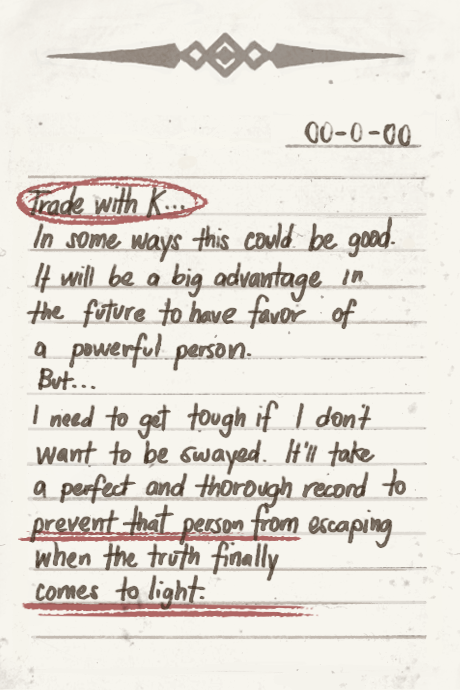 00-0-00
Trade with K...
In some ways this could be good.
It will be a big advantage in
the future to have favor of
a powerful person.
But...
I need to get tough if I don't
want to be swayed. It'll take
a perfect and thorough record to
prevent that person from escaping
when the truth finally
comes to light.